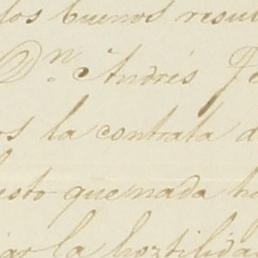 los buenos resul
Dn. Andrés Fe
os la contrata d
isto que nada ha
iar la hoztilida